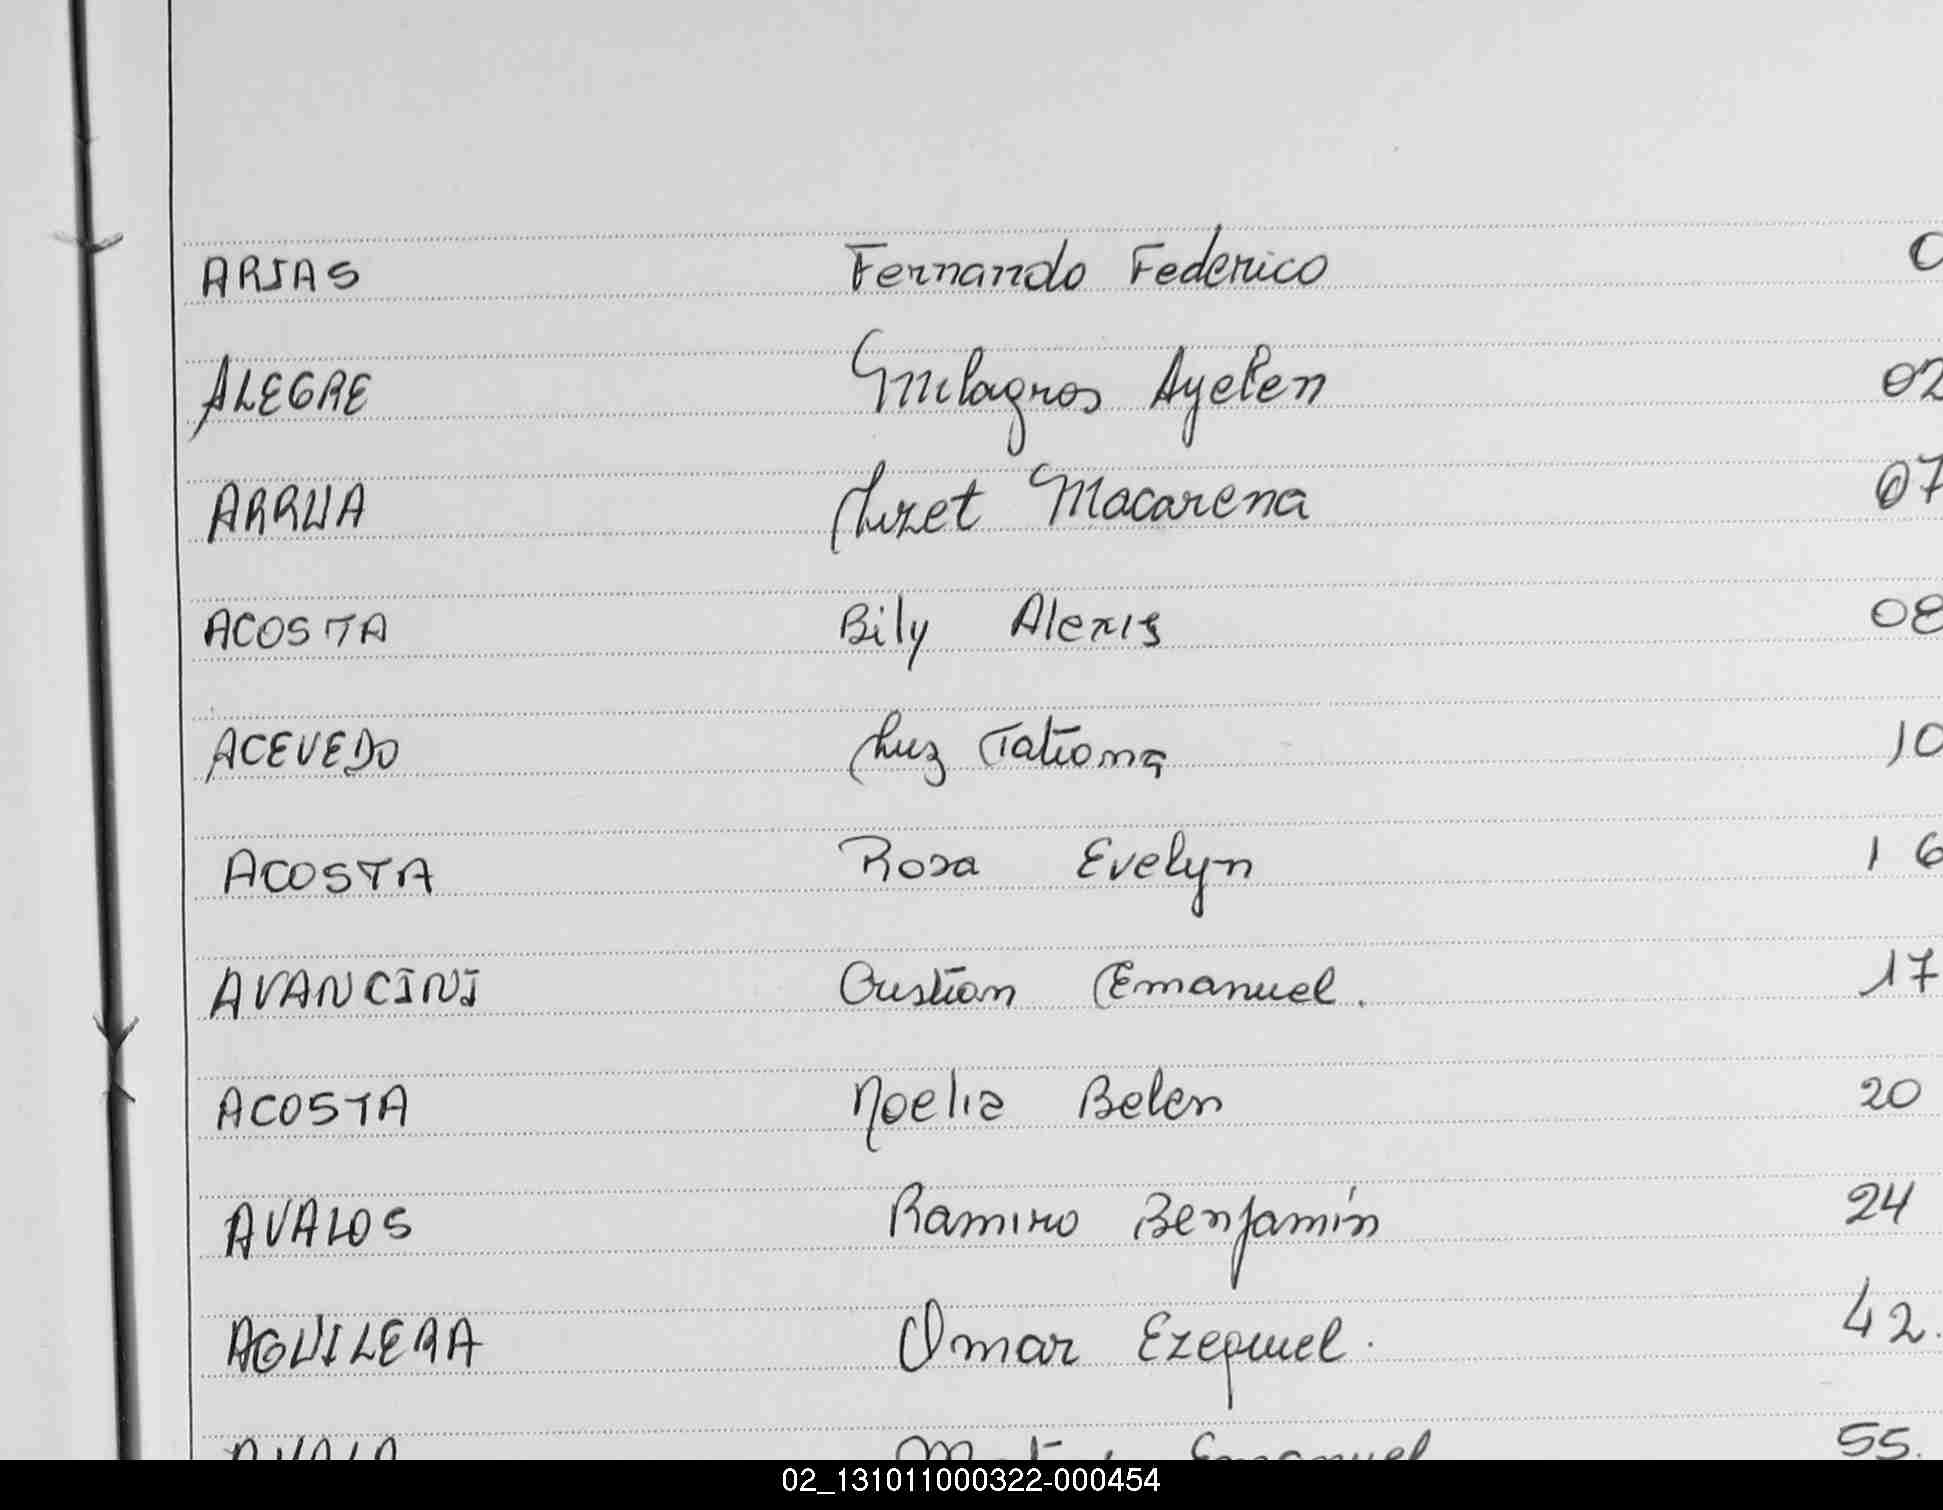 ARIAS Fernando Federico 0
ALEGRE Milagros Ayelen 02
ARRUA Lizet Macarena 07
ACOSTA Bily Alexis 08
ACEVEDO Luz Tatiana 10
ACOSTA Rosa Evelyn 16
AVANCINI Cristian Emanuel. 17
ACOSTA Noelia Belen 20
AVALOS Ramiro Benjamín 24
AGUILERA Omar Ezequiel. 42.
Emanuel 55.
02_131011000322-000454